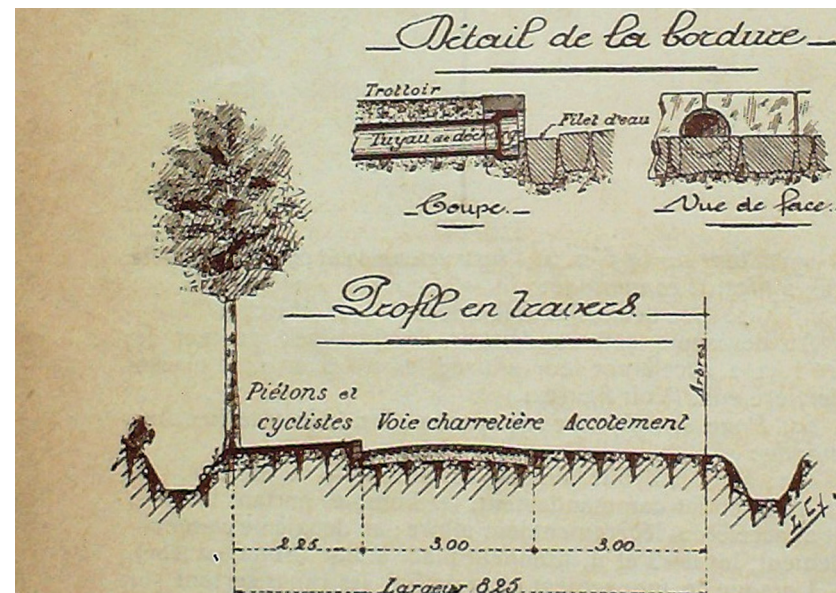 Détail de la bordure
Trottoir
Tuyau de décharge
Filet d'eau
Coupe.
Vue de face.
Profil en travers.
Arbres
Piétons et
cyclistes
Voie charretière
Accotement
2.25
3.00
3.00
Largeur 8.25